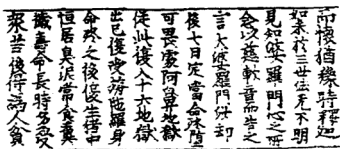 而懷猶豫時釋迦
如來於三世法无不明
見知婆羅門心之所
念以慈軟音而告之
言大婆羅門汝却
後七日定當命終墮
可畏處阿鼻地獄
從此復入十六地獄
出已復受旃陀羅身
命終之後復生猪中
恒居臭泥常食糞
穢壽命長時多受
眾苦後得為人貧